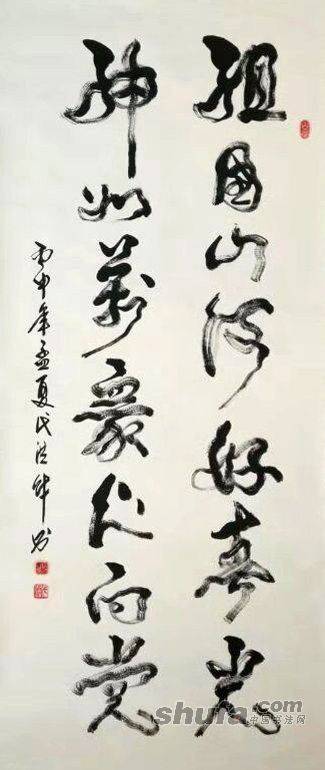 祖國山河好春光
神州萬衆心向党
丙申年孟夏
shufa.com
中国书法网